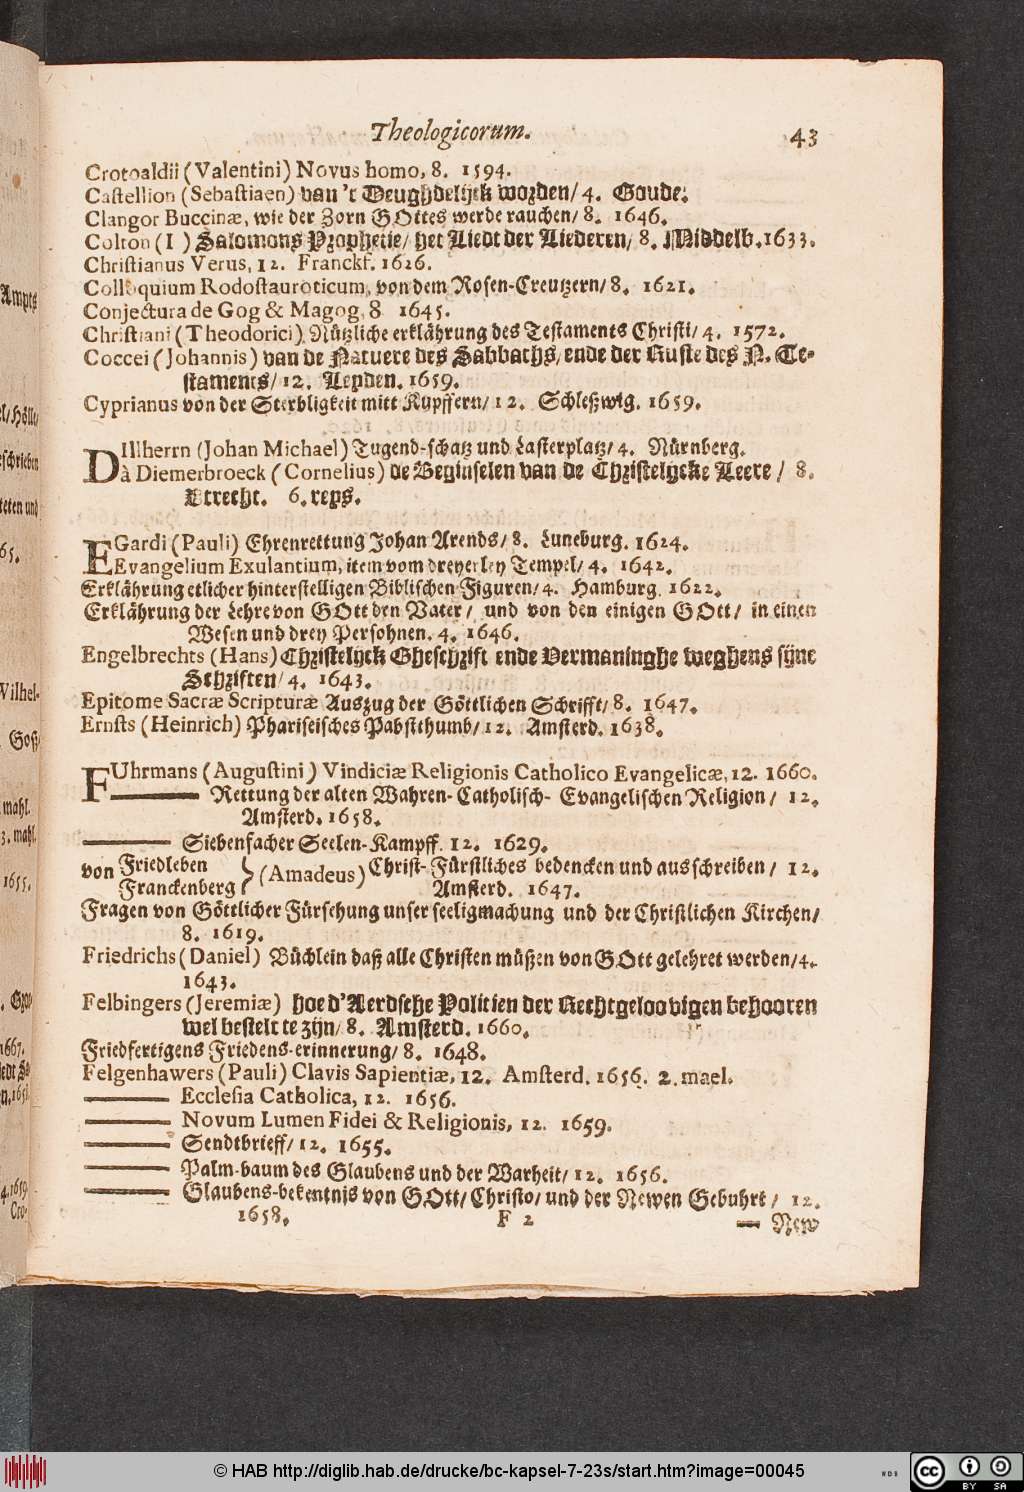 Theologicorum. 43
Crotoaldii (Valentini) Novus homo, 8. 1594.
Castellion (Sebastiaen) van 't Deughdelijck worden/ 4. Goude.
Clangor Buccinæ, wie der Zorn GOttes werde rauchen/ 8. 1646.
Colton (I) Salomons Prophetie/ het Liedt der Liederen/ 8. Middelb. 1633.
Christianus Verus, 12. Franckf. 1626.
Colloquium Rodostauroticum, von dem Rosen-Creutzern/ 8. 1621.
Conjectura de Gog & Magog, 8 1645.
Christiani (Theodorici) Nützliche erklährung des Testaments Christi/ 4. 1572.
Coccei (Johannis) van de Natuere des Sabbaths, ende der Ruste des N. Te-
staments/ 12. Leyden. 1659.
Cyprianus von der Sterbligkeit mitt Kupffern/ 12. Schleßwig. 1659.
DIllherrn (Johan Michael) Tugend-schatz und Lasterplatz/ 4. Nürnberg.
à Diemerbroeck (Cornelius) de Beginselen van de Christelijcke Leere / 8.
Utrecht. 6. reys.
EGardi (Pauli) Ehrenrettung Johan Arends/ 8. Luneburg. 1624.
Evangelium Exulantium, item vom dreyerley Tempel/ 4. 1642.
Erklährung etlicher hinterstelligen Biblischen Figuren/ 4. Hamburg. 1622.
Erklährung der Lehre von GOtt den Vater/ und von den einigen GOtt/ in einen
Wesen und drey Persohnen. 4. 1646.
Engelbrechts (Hans) Christelijck Gheschrift ende Vermaninghe weghens sijne
Schriften/ 4. 1643.
Epitome Sacræ Scripturæ Auszug der Göttlichen Schrifft/ 8. 1647.
Ernsts (Heinrich) Phariseisches Pabstthumb/ 12. Amsterd. 1638.
FUhrmans (Augustini) Vindiciæ Religionis Catholico Evangelicæ, 12. 1660.
——— Rettung der alten Wahren-Catholisch-Evangelischen Religion/ 12.
Amsterd. 1658.
——— Siebenfacher Seelen-Kampff. 12. 1629.
von Friedleben } (Amadeus) Christ-Fürstliches bedencken und ausschreiben/ 12.
Franckenberg Amsterd. 1647.
Fragen von Göttlicher Fürsehung unser seeligmachung und der Christlichen Kirchen/
8. 1619.
Friedrichs (Daniel) Büchlein daß alle Christen müßen von GOtt gelehret werden/ 4.
1643.
Felbingers (Jeremiæ) hoe d'Aerdsche Politien der Rechtgeloovigen behooren
wel bestelt te zijn/ 8. Amsterd. 1660.
Friedfertigens Friedens-erinnerung/ 8. 1648.
Felgenhawers (Pauli) Clavis Sapientiæ, 12. Amsterd. 1656. 2. mael.
——— Ecclesia Catholica, 12. 1656.
——— Novum Lumen Fidei & Religionis, 12. 1659.
——— Sendtbrieff/ 12. 1655.
——— Palm-baum des Glaubens und der Warheit/ 12. 1656.
——— Glaubens-bekentnis von GOtt/ Christo/ und der Newen Gebuhrt / 12.
1658. F 2 — New
© HAB http://diglib.hab.de/drucke/bc-kapsel-7-23s/start.htm?image=00045